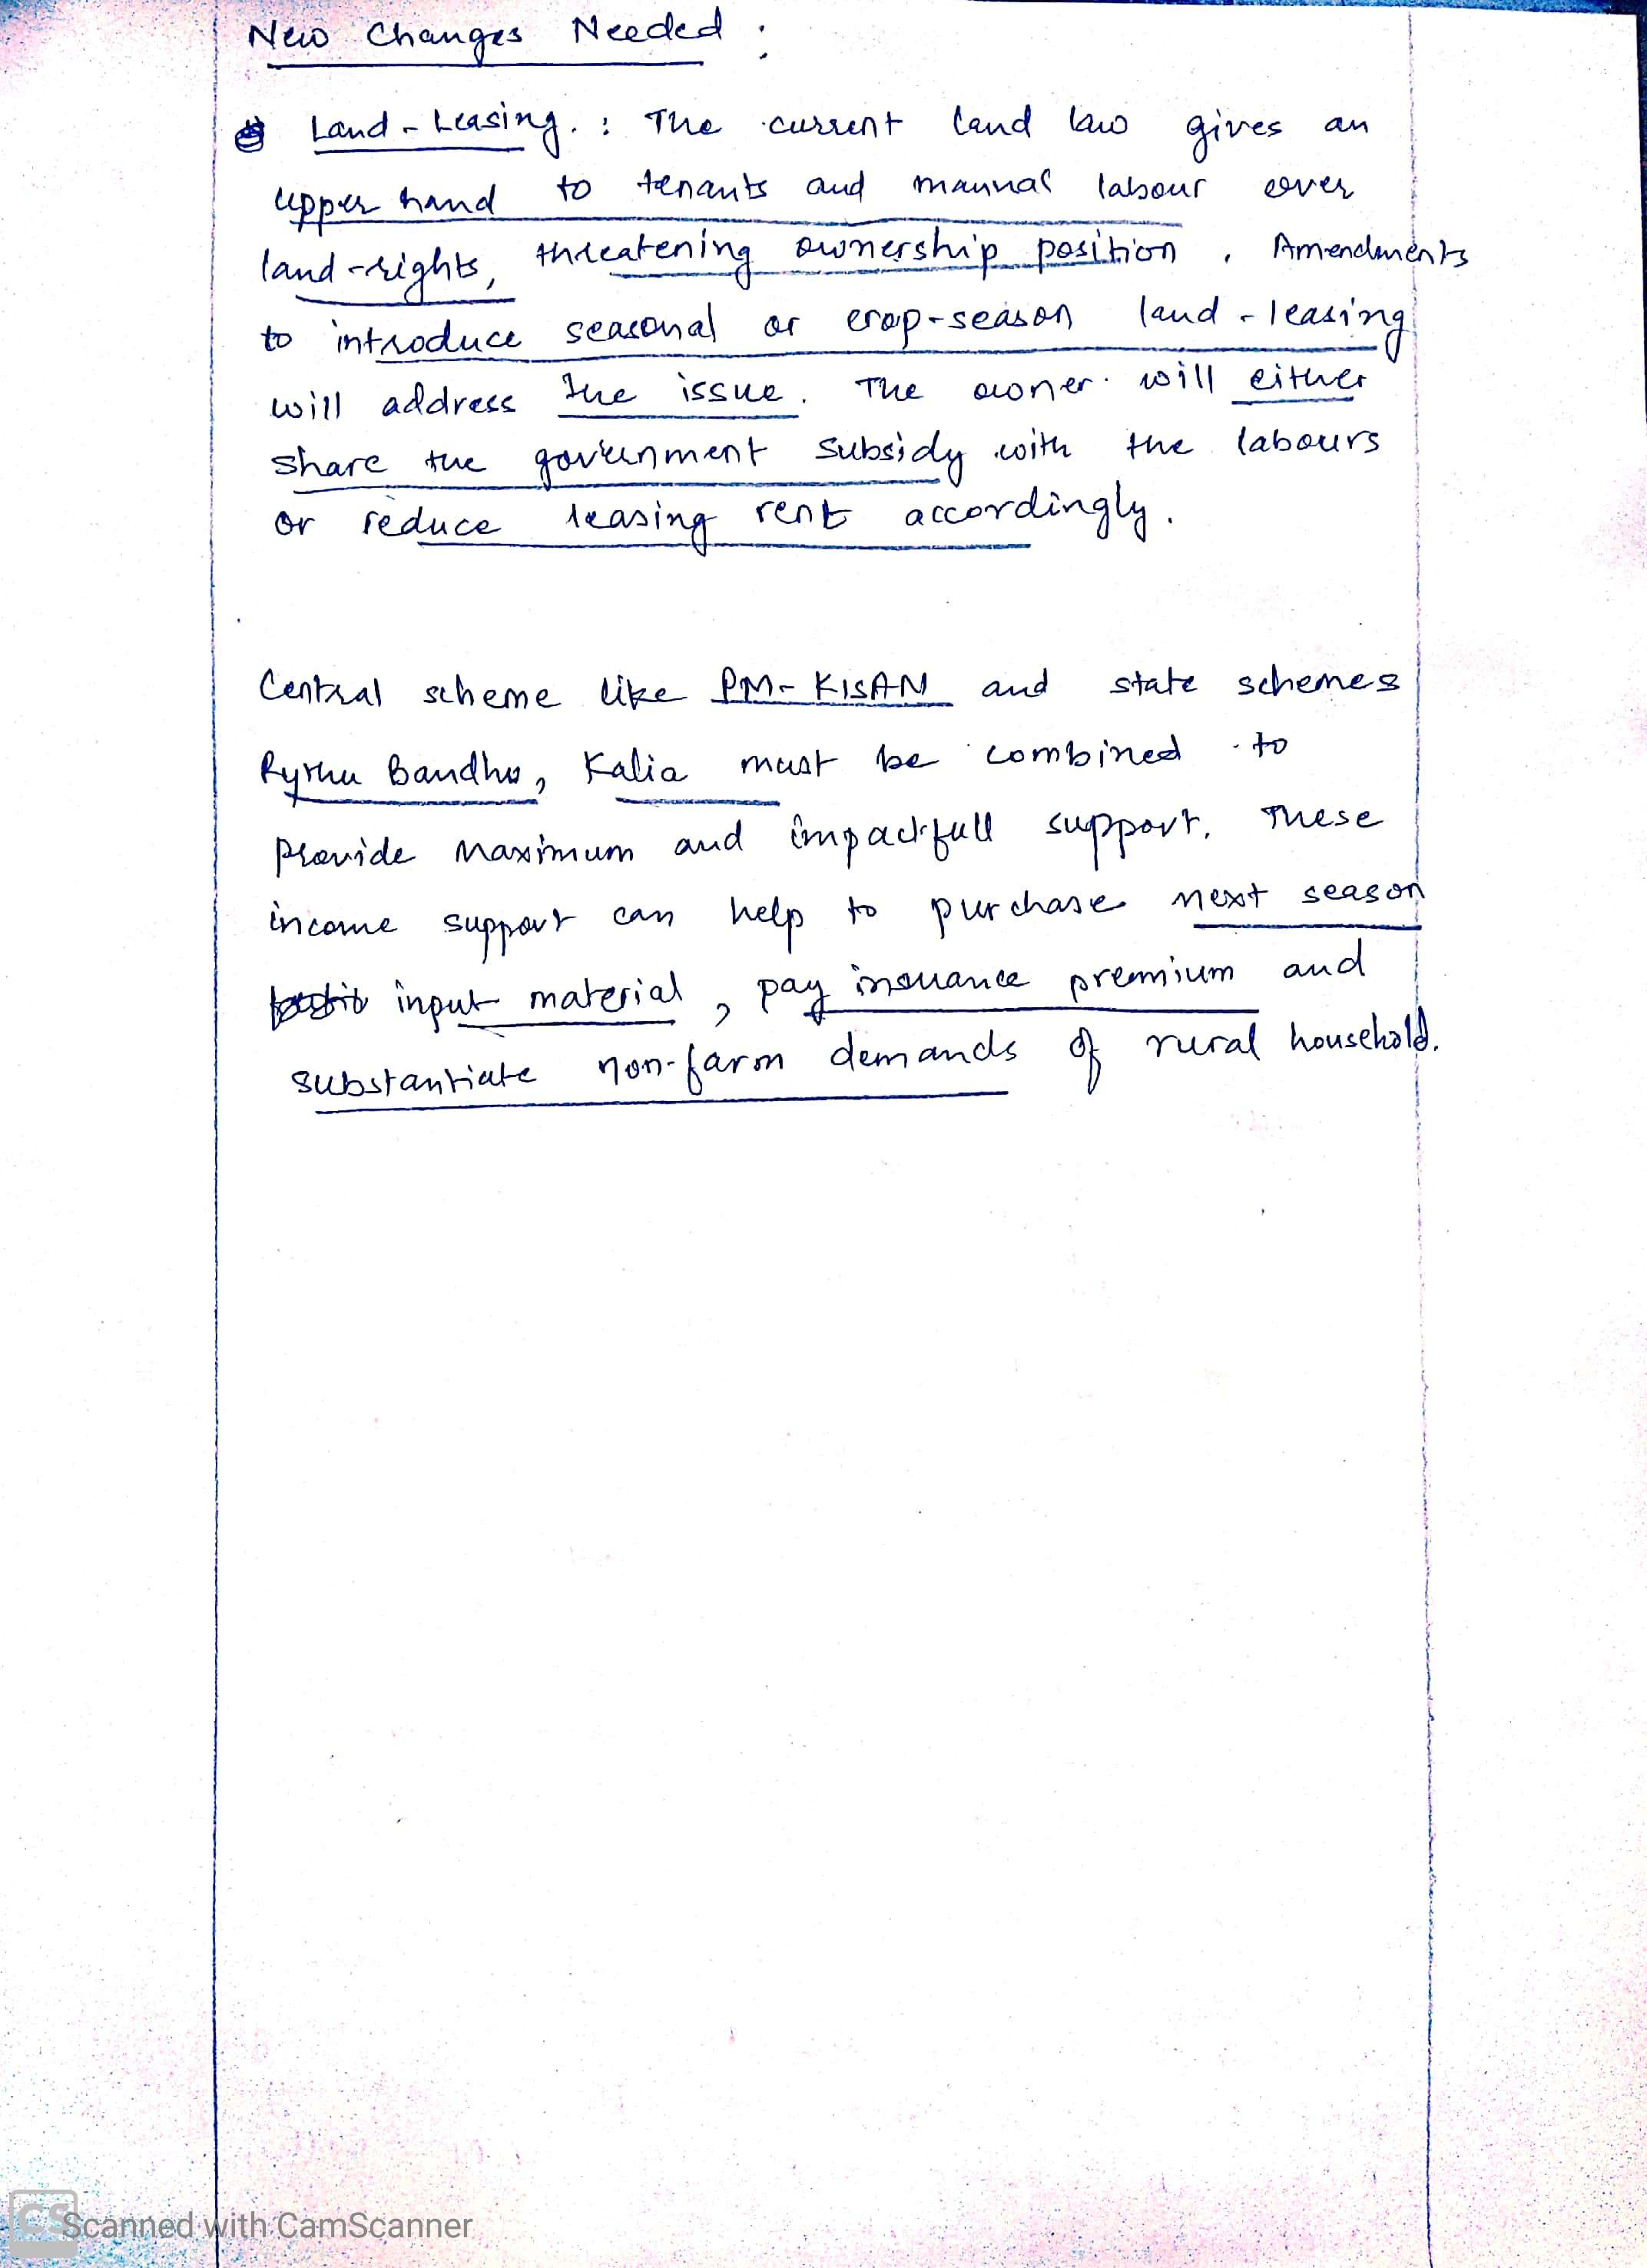 New Changes Needed :
Land - Leasing. : The current land law gives an
upper hand to tenants and mannal labour over
land-rights, threatening ownership position. Amendments
to introduce seasonal or crop-season land-leasing
will address the issue. The owner will either
share the government subsidy with the labours
or reduce leasing rent accordingly.
Central scheme like PM-KISAN and state schemes
Rythu Bandhu, Kalia must be combined to
provide maximum and impactfull support. These
income support can help to purchase next season
input material, pay insurance premium and
substantiate non-farm demands of rural household.
CS Scanned with CamScanner